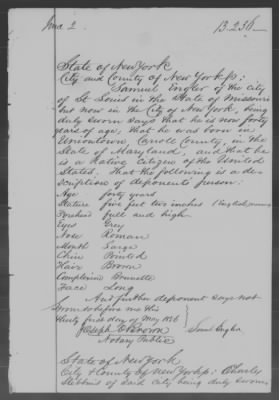 State of New York
City and County of New York ss:
Samuel Engler of the City
of St Louis in the State of Missouri
but now in the City of New York, being
duly sworn says that he is now forty
years of age, that he was born in
Uniontown Carroll County, in the
State of Maryland, and that he
is a Native Citizen of the United
States, That the following is a des-
cription of deponents person:
Age forty years
Stature five feet two inches English
Forehead full and high
Eyes Grey
Nose Roman
Mouth Large
Chin Pointed
Hair Brown
Complexion Brunette
Face Long
And further deponent says not
Sworn to before me this
thirty first day of May
Joseph
Notary Public
Saml Engler
State of New York
City & County of New York ss: Charles
Stebbins of said City being duly sworn